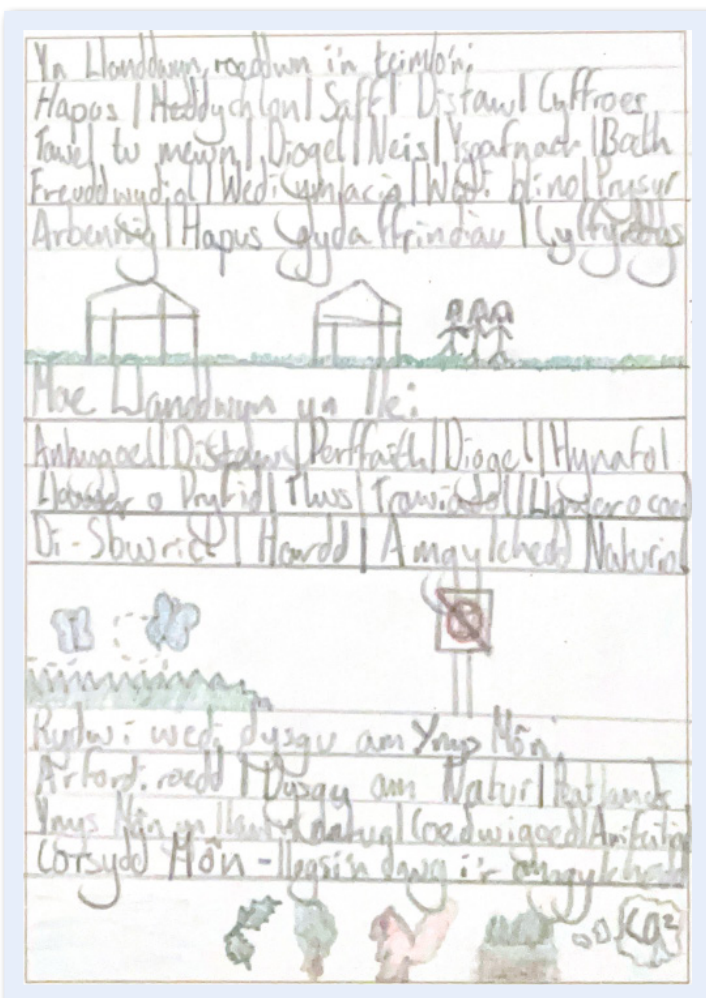 Yn Llanddwyn, roeddwn i'n teimlo'n:
Hapus | Heddychlon | Saff | Distaw | Cyffroes
Tawel tu mewn | Diogel | Neis | Ysgafnach | Balch
Freuddwydiol | Wedi ymlacio | Wedi blino | Prysur
Arbennig | Hapus gyda ffrindiau | Cyffyrddys
Mae Llanddwyn yn lle:
Anhygoel | Distaw | Perffaith | Diogel | Hynafol
Llawer o Pryfid | Tlws | Trawiadol | Llawer o coed
Di-Sbwriel | Hardd | Amgylchedd Naturiol
Rydw i wedi dysgu am Ynys Môn
Arfordiroedd | Dysgu am Natur | Peatlands
Ynys Môn yn llawn natur | Coedwigoedd | Anifeilia
Corsydd Môn - llesin dawg i'r amgylchedd
CO²